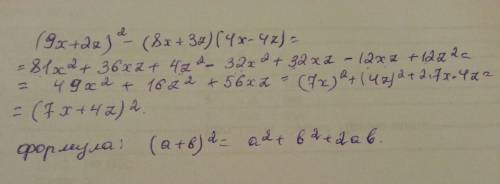 (9x+2z)² - (8x+3z)(4x-4z)=
=81x²+36xz+4z²-32x²+32xz-12xz+12z²=
= 49x² + 16z² + 56xz = (7x)²+(4z)²+2·7x·4z=
=(7x+4z)².
формула: (а+в)² = а²+в²+2ав.